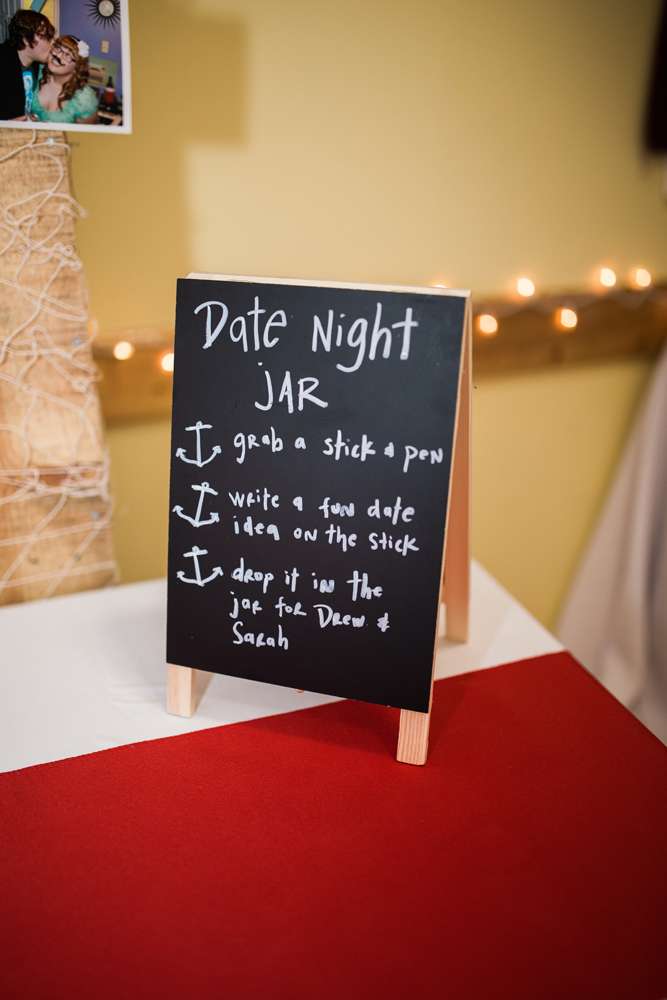 Date Night
JAR
grab a stick & pen
write a fun date
idea on the stick
drop it in the
jar for Drew &
Sarah